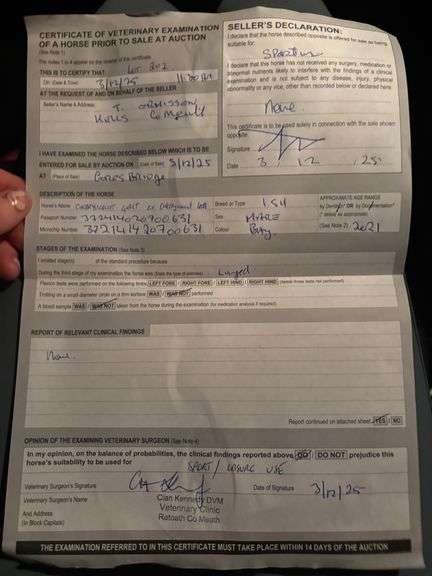 CERTIFICATE OF VETERINARY EXAMINATION
OF A HORSE PRIOR TO SALE AT AUCTION
(See Note 1)
THIS IS TO CERTIFY THAT
On (Date & Time) 3/12/25 11:00AM
AT THE REQUEST OF AND ON BEHALF OF THE SELLER
Seller's Name & Address:
I HAVE EXAMINED THE HORSE DESCRIBED BELOW WHICH IS TO BE
ENTERED FOR SALE BY AUCTION ON (Date of Sale) 3/12/25
AT (Place of Sale) Goresbridge
SELLER'S DECLARATION:
I declare that the horse described opposite is offered for sale as being
suitable for:
I declare that this horse has not received any surgery, medication or
abnormal nutrients likely to interfere with the findings of a clinical
examination and is not subject to any disease, injury, physical
abnormality or vice, other than recorded below or declared here
None
This certificate is to be used solely in connection with the sale shown
opposite.
Signature
Date 3 12 25
DESCRIPTION OF THE HORSE
Horse's Name
Breed or Type ISH
APPROXIMATE AGE RANGE
By Dentition* OR By Documentation*
(* delete as appropriate)
(See Note 2) 2021
Passport Number
Sex MARE
Microchip Number
Colour Bay
STAGES OF THE EXAMINATION (See Note 3)
I omitted stage(s) of the standard procedure because
During the third stage of my examination the horse was Lunged
Flexion tests were performed on the following limbs LEFT FORE / RIGHT FORE / LEFT HIND / RIGHT HIND
Trotting on a small diameter circle on a firm surface WAS / WAS NOT performed
A blood sample WAS / WAS NOT taken from the horse during the examination (for medication analysis if required)
REPORT OF RELEVANT CLINICAL FINDINGS
None.
Report continued on attached sheet YES / NO
OPINION OF THE EXAMINING VETERINARY SURGEON (See Note 4)
In my opinion, on the balance of probabilities, the clinical findings reported above DO DO NOT prejudice this
horse's suitability to be used for SPORT / LEISURE USE
Veterinary Surgeon's Signature
Date of Signature 3/12/25
Veterinary Surgeon's Name
And Address
(In Block Capitals)
Cian Kennedy DVM
Veterinary Clinic
Ratoath Co Meath
THE EXAMINATION REFERRED TO IN THIS CERTIFICATE MUST TAKE PLACE WITHIN 14 DAYS OF THE AUCTION